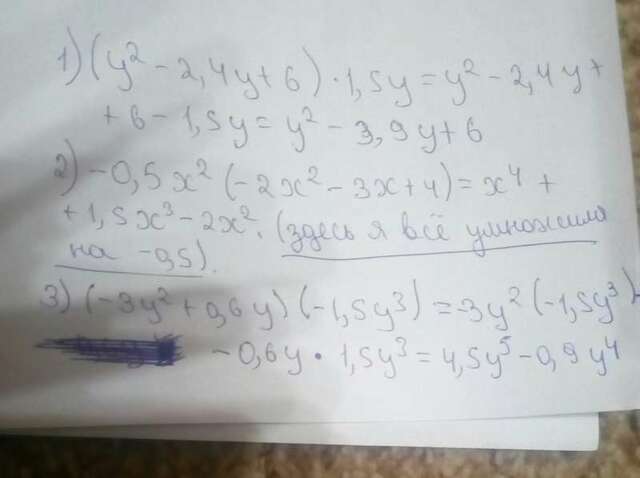 1) (y² - 2,4y + 6) · 1,5y = y² - 2,4y +
+ 6 - 1,5y = y² - 3,9y + 6
2) -0,5x² (-2x² - 3x + 4) = x⁴ +
+ 1,5x³ - 2x². (здесь я всё умножила
на -0,5).
3) (-3y² + 0,6y) (-1,5y³) = -3y² (-1,5y³) -
- 0,6y · 1,5y³ = 4,5y⁵ - 0,9y⁴